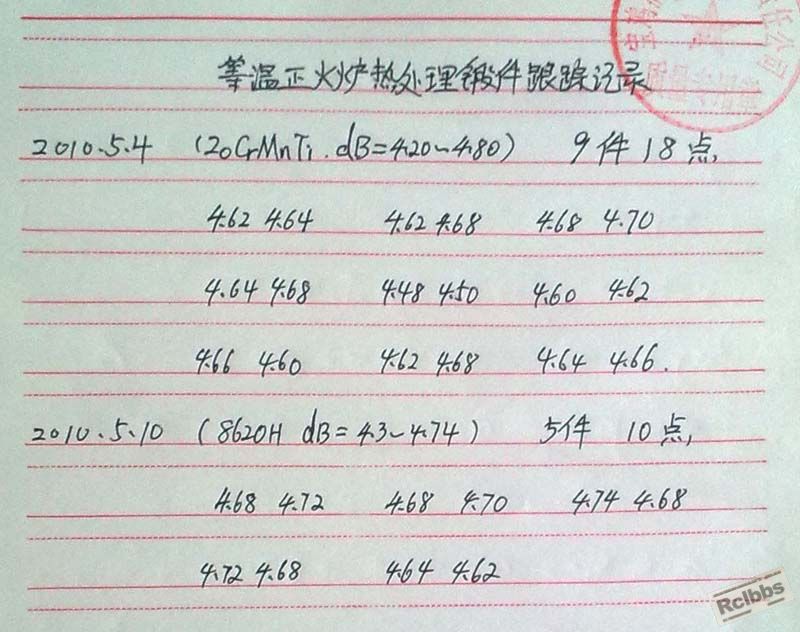 等温正火炉热处理锻件跟踪记录
2010.5.4 (20CrMnTi. dB=4.20~4.80) 9件18点,
4.62 4.64 4.62 4.68 4.68 4.70
4.64 4.68 4.48 4.50 4.60 4.62
4.66 4.60 4.62 4.68 4.64 4.66.
2010.5.10 (8620H dB=4.3~4.74) 5件 10点,
4.68 4.72 4.68 4.70 4.74 4.68
4.72 4.68 4.64 4.62
Rclbbs